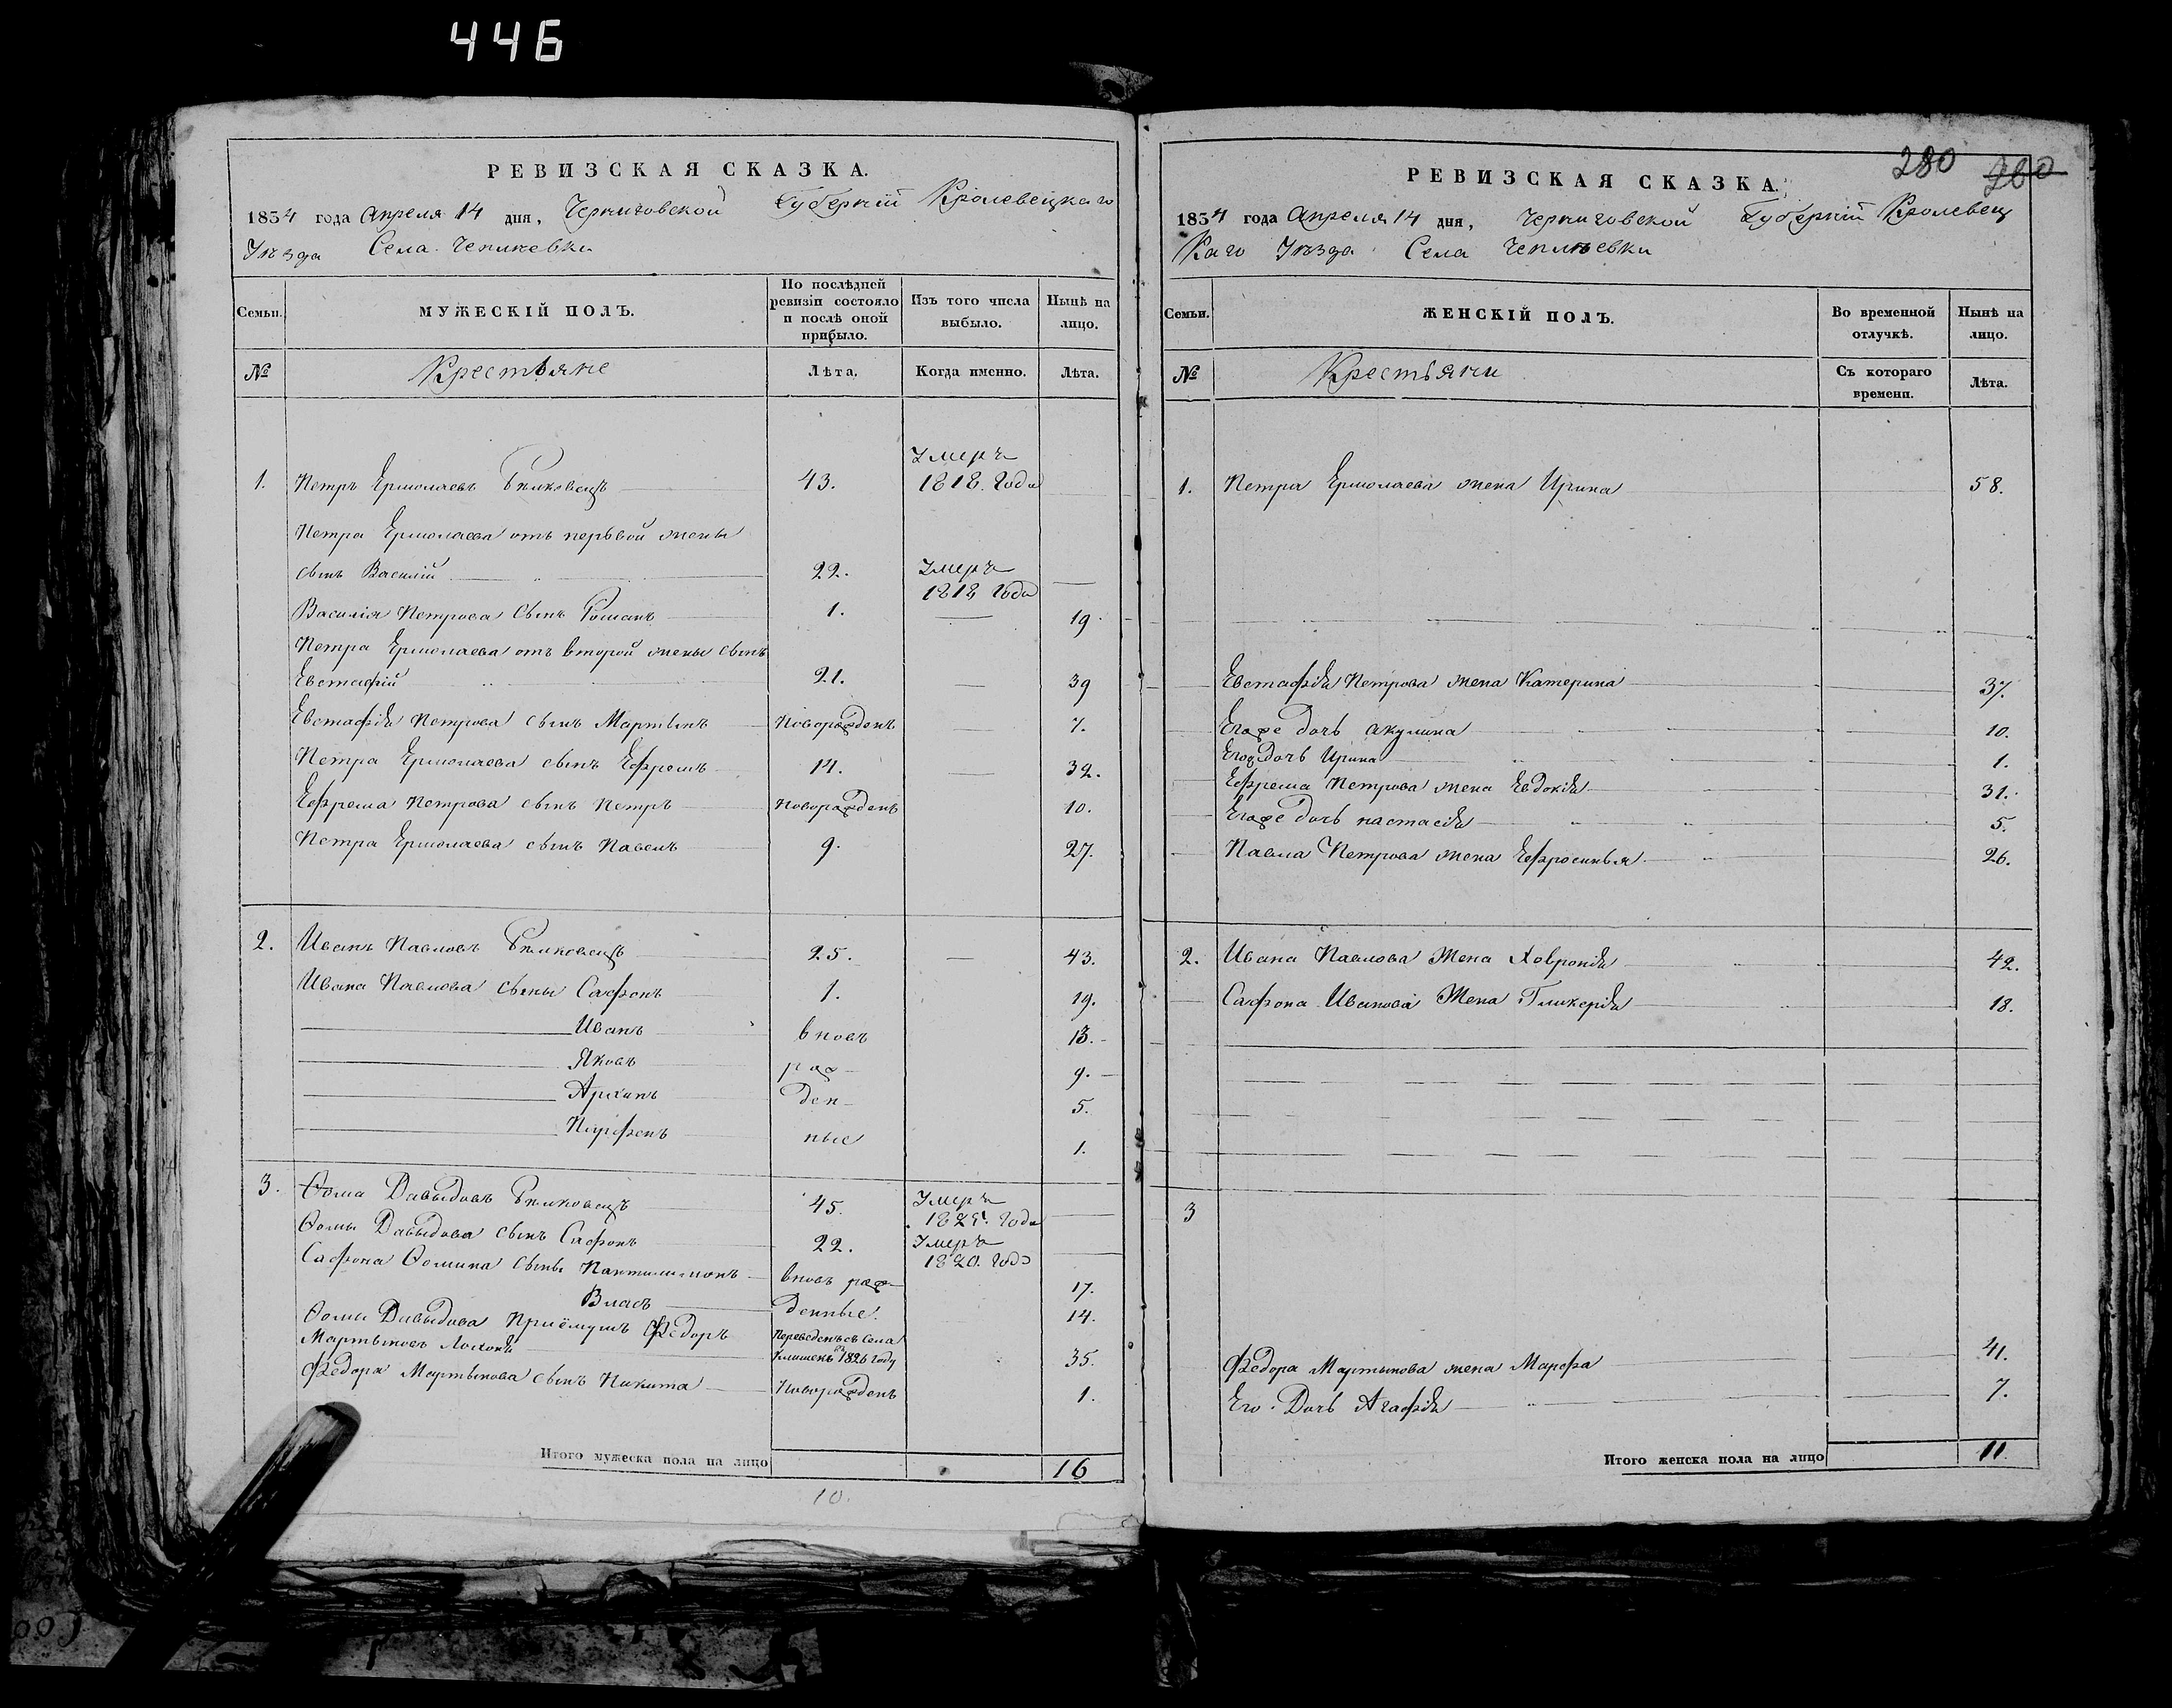 446
РЕВИЗСКАЯ СКАЗКА.
1834 года Апреля 14 дня, Черниговской Губерніи Кролевецкаго
Уѣзда Села Чепиневки
Семьи.
МУЖЕСКІЙ ПОЛЪ.
По послѣдней ревизіи состояло и послѣ оной прибыло.
Изъ того числа выбыло.
Нынѣ на лицо.
№ Крестьяне Лѣта. Когда именно. Лѣта.
Умеръ
1. Петръ Ермолаевъ 43. 1818. Года
Петра Ермолаева отъ первой жены
сынъ Василій 22. Умеръ
1818 Года
Василія Петрова Сынъ Романъ 1. 19.
Петра Ермолаева отъ второй жены сынъ
Евстафій 21. 39
Евстафія Петрова сынъ Мартынъ Новорожденъ 7.
Петра Ермолаева сынъ Ефремъ 14. 32.
Ефрема Петрова сынъ Петръ Новорожденъ 10.
Петра Ермолаева сынъ Павелъ 9. 27.
2. Иванъ Павловъ 25. 43.
Ивана Павлова сыны Сафонъ 1. 19.
Иванъ вновь 13.
Яковъ рож 9.
Архипъ ден 5.
Парфенъ ные 1.
3. Ѳома Давыдовъ 45. Умеръ
1825. Года
Ѳомы Давыдова сынъ Сафонъ 22. Умеръ
1820. Года
Сафона Ѳомина сыны вновь рож 17.
Власъ денные. 14.
Ѳомы Давыдова Пріёмышъ Федоръ Переведенъ съ Села
Мартыновъ 1826 году 35.
Федора Мартынова сынъ Никита Новорожденъ 1.
Итого мужеска пола на лицо 16
10.
280 260
РЕВИЗСКАЯ СКАЗКА.
1834 года Апреля 14 дня, Черниговской Губерніи Кролевец
каго Уѣзда Села Чепиневки
Семьи.
ЖЕНСКІЙ ПОЛЪ.
Во временной отлучкѣ.
Нынѣ на лицо.
№ Крестьяни Съ котораго времени. Лѣта.
1. Петра Ермолаева жена Ирина 58.
Евстафія Петрова жена Катерина 37.
Егоже дочь Акулина 10.
Егож дочь Ирина 1.
Ефрема Петрова жена Евдокія 31.
Егоже дочь Настасія 5.
Павла Петрова жена Ефросинья 26.
2. Ивана Павлова Жена Ховронія 42.
Сафона Иванова Жена Гликерія 18.
3
Федора Мартынова жена Марфа 41.
Его Дочь Агафія 7.
Итого женска пола на лицо 11.